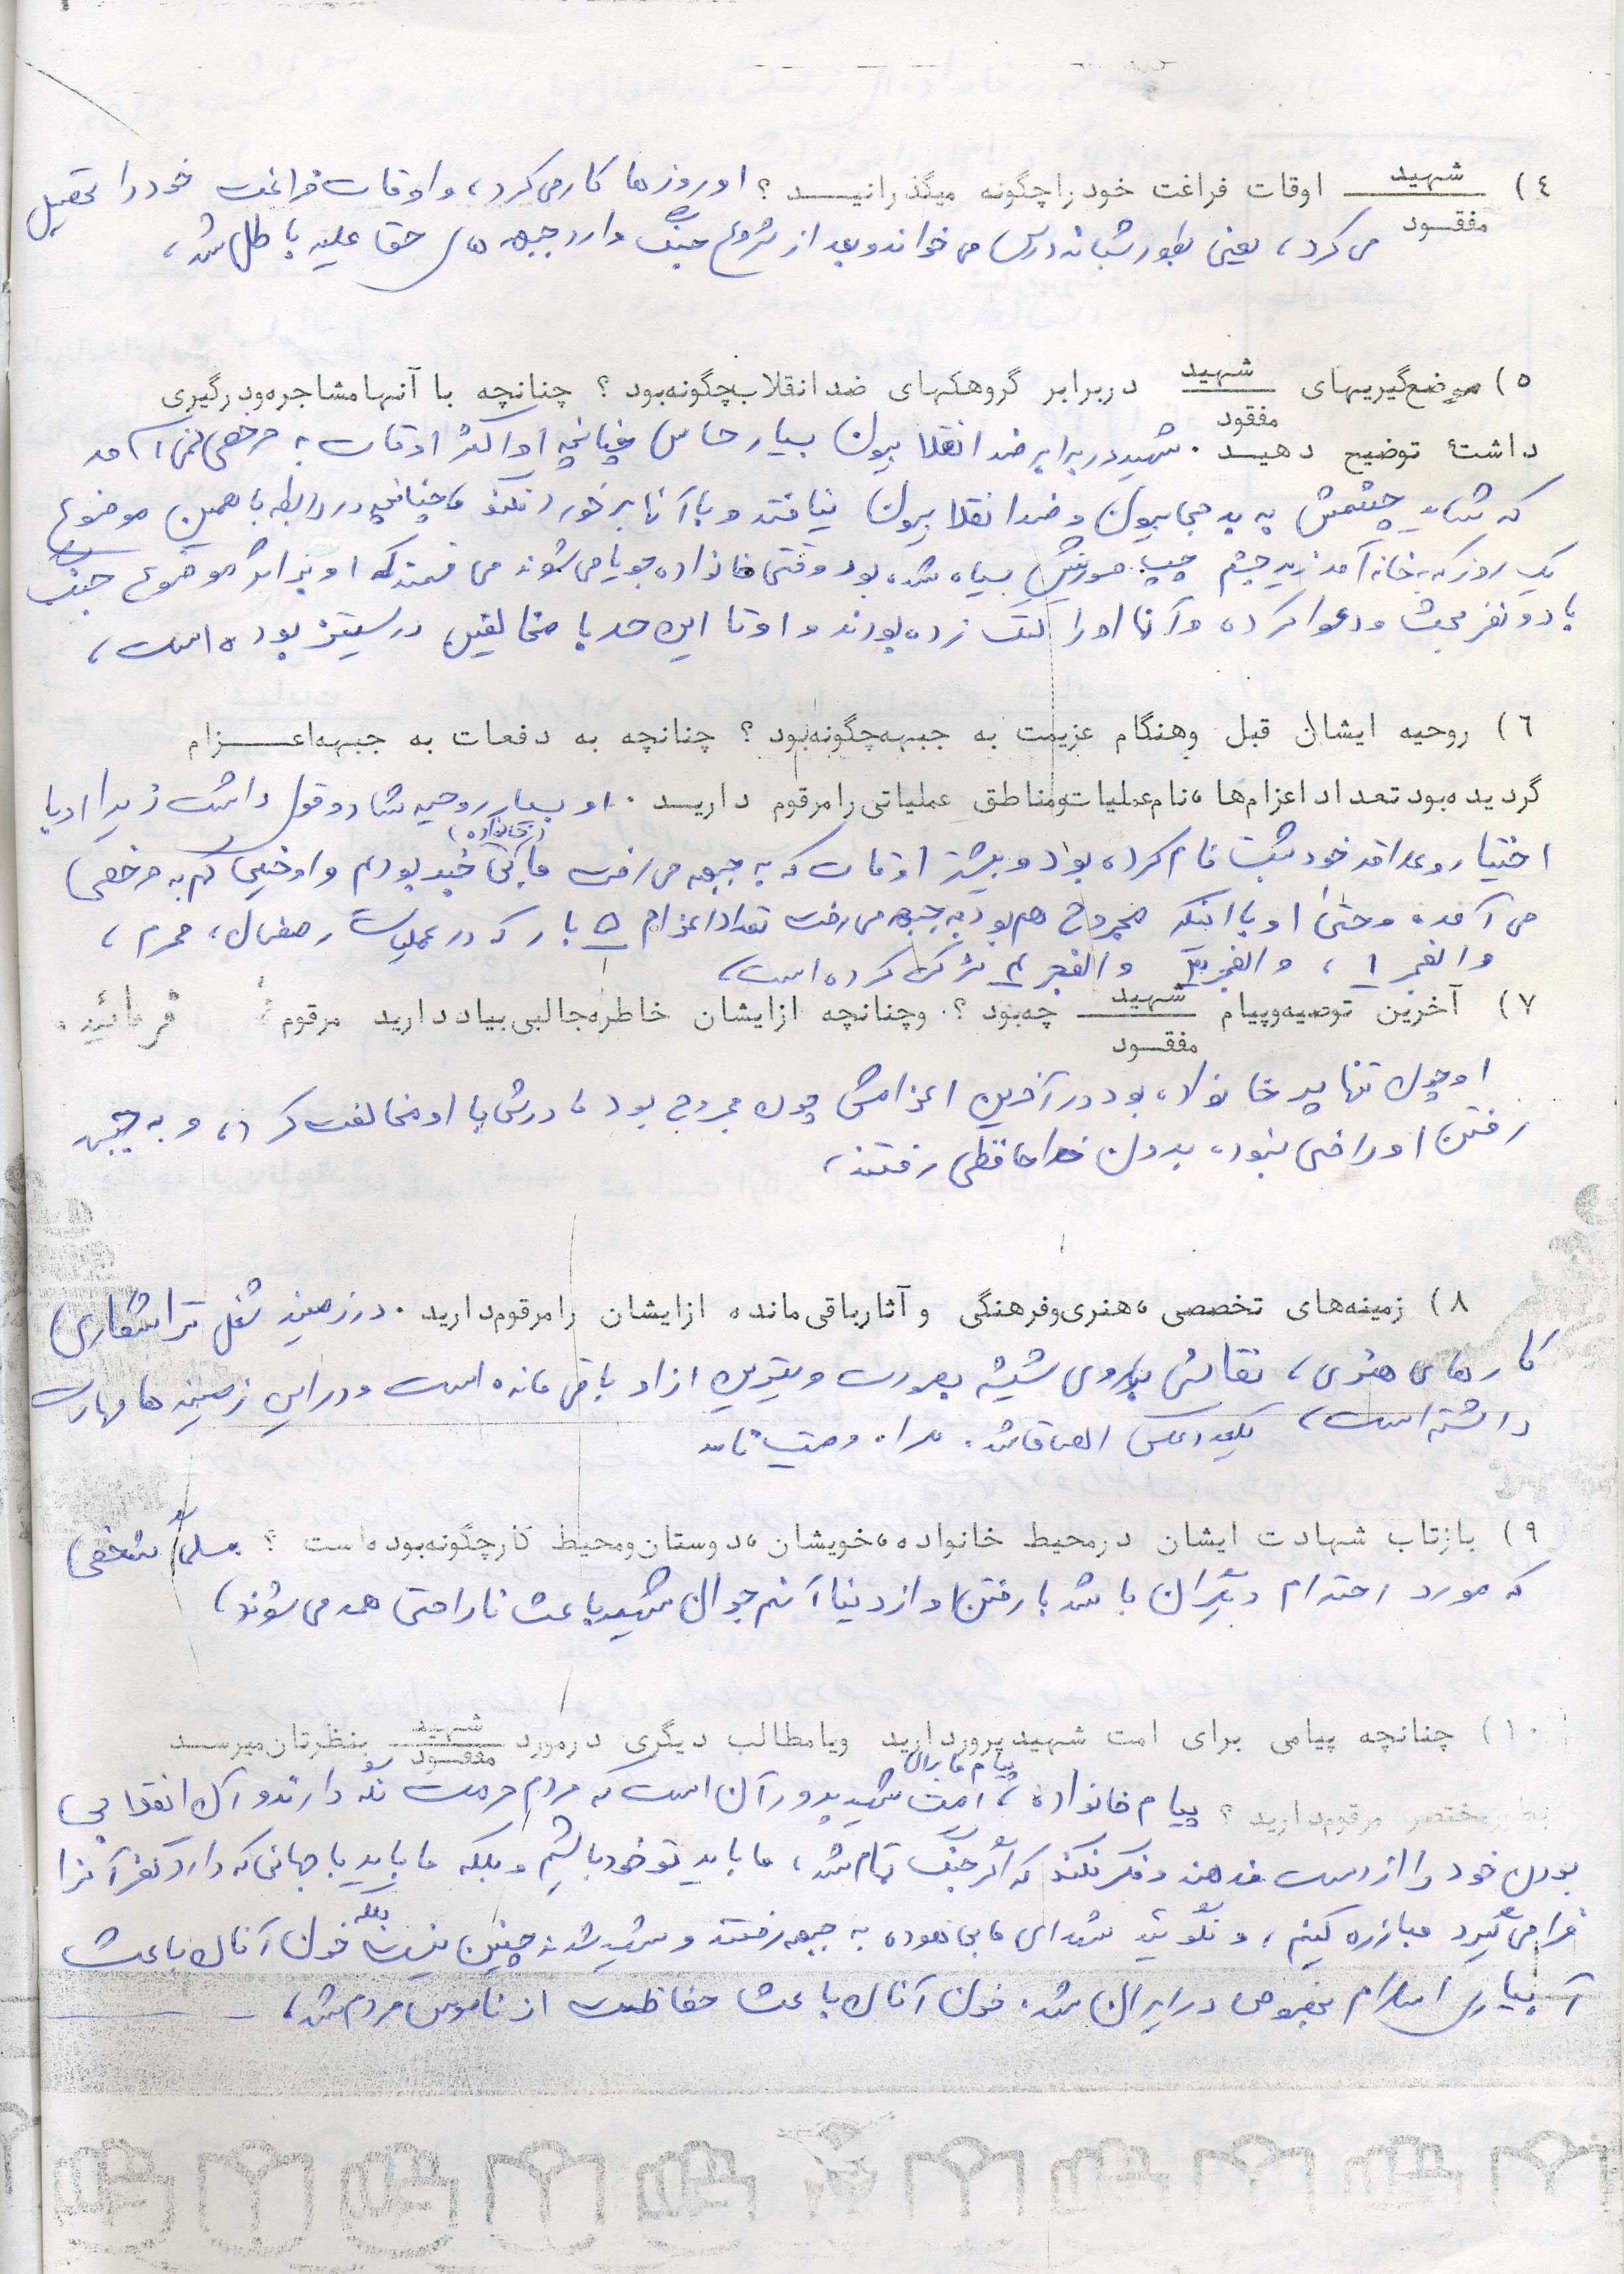 ٤) شهید
مفقود اوقات فراغت خود را چگونه میگذرانید ؟ او روزها کار می کرد، و اوقات فراغت خود را تحصیل
می کرد، یعنی بطور شبانه درس می خواند و بعد از شروع جنگ وارد جبهه های حق علیه باطل شد،
٥) موضع گیریهای شهید
مفقود در برابر گروهکهای ضد انقلاب چگونه بود ؟ چنانچه با آنها مشاجره و درگیری
داشتۀ توضیح دهید . شهید در برابر ضد انقلابیون بسیار حساس چنانچه او اکثر اوقات به مرخصی نمی آمد
که شاید چشمش به بدحجابیون و ضد انقلابیون نیافتد و با آنها برخورد نکند ، چنانچه در رابطه با همین موضوع
یک روز که به خانه آمد زیر چشم چپ صورتش سیاه شده بود وقتی خانواده جویا می شوند می فهمند که او بر اثر موضوع جنگ
با دو نفر بحث و دعوا کرده و آنها او را کتک زده بودند و او تا این حد با مخالفین در ستیز بوده است،
٦) روحیه ایشان قبل و هنگام عزیمت به جبهه چگونه بود ؟ چنانچه به دفعات به جبهه اعزام
گردیده بود تعداد اعزام ها ، نام عملیات و مناطق عملیاتی را مرقوم دارید . او بسیار روحیه شاد و داشت زیرا او با
اختیار و علاقه خود ثبت نام کرده بود و بیشتر اوقات که به جبهه می رفت ما (خانواده) بی خبر بودیم و او خیلی کم به مرخصی
می آمد و حتی او با اینکه مجروح هم بود به جبهه می رفت تعداد اعزام ۵ بار که در عملیات رمضان، محرم،
والفجر ۱ ، والفجر و والفجر ۴ شرکت کرده است،
٧) آخرین توصیه و پیام شهید
مفقود چه بود ؟. و چنانچه از ایشان خاطره جالبی بیاد دارید مرقوم فرمائید .
او چون تنها پسر خانواده بود در آخرین اعزامش چون مجروح بود ، مادرش با او مخالفت کرد، و به جبهه
رفتن او راضی نبود، بدون خداحافظی رفتند،
٨) زمینه های تخصصی ، هنری و فرهنگی و آثار باقی مانده از ایشان را مرقوم دارید . در زمینه شغل تراشکاری
کارهای هنری، نقاشی بر روی شیشه بصورت ویترین از او باقی مانده است و در این زمینه ها مهارت
داشته است، یکعدد عکس الصاق شد . وصیت نامه
٩) بازتاب شهادت ایشان در محیط خانواده ، خویشان ، دوستان و محیط کار چگونه بوده است ؟ مسلماً شخصی
که مورد احترام دیگران باشد با رفتن او از دنیا آنهم جوان شهید باعث ناراحتی همه می شوند،
١٠) چنانچه پیامی برای امت شهید پرور دارید و یا مطالب دیگری در مورد شهید
مفقود بنظرتان میرسد
بطور مختصر مرقوم دارید ؟ پیام خانواده ، پیام ما برای امت شهید پرور آن است که مردم حرمت نگه دارند و آن انقلابی
بودن خود را از دست ندهند و فکر نکنند که اگر جنگ تمام شد، ما باید تو خود باشیم و بلکه ما باید با جهانی که دارد کفر آنرا
فرا می گیرد مبارزه کنیم، و نگوئید شهدای ما بی هوده به جبهه رفتند و شهید شدند چنین نیست بلکه خون آنان باعث
آبیاری اسلام بخصوص در ایران شد. خون آنان باعث حفاظت از ناموس مردم شد،